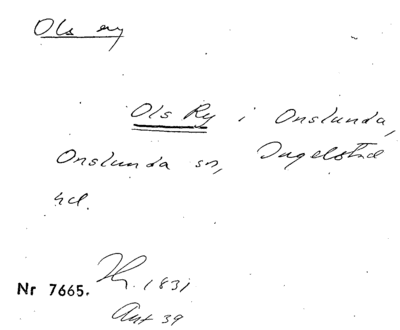 Ols ry
Ols Ry i Onslunda,
Onslunda sn, Ingelstad
hd.
Nr 7665. Th. 1831
Ant 39